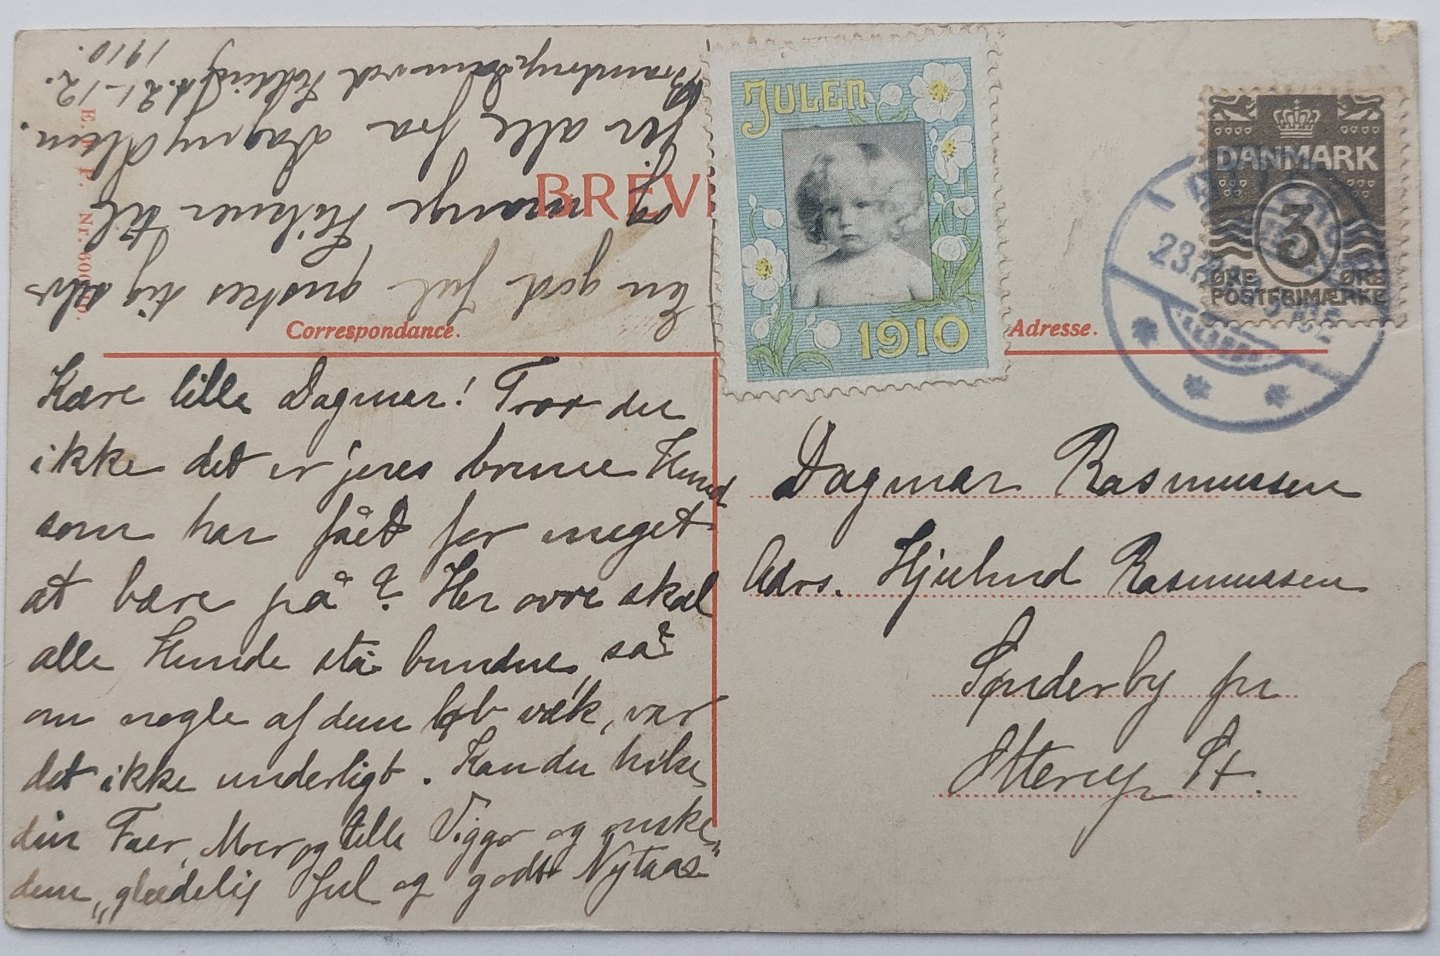 BREV
Correspondance.
Adresse.
JULEN
1910
DANMARK
3
ØRE ØRE
POSTFRIMÆRKE
23
Kære lille Dagmar! Tror du
ikke det er jeres brune Hund
som har fået for meget
at bære på? Her ovre skal
alle Hunde stå bundne, så
om nogle af dem løb væk, var
det ikke underligt. Kan du hilse
din Faer, Moer og lille Viggo og ønske
dem „glædelig Jul og godt Nytaar"
En god Jul ønskes dig selv
og mange Hilsner til
jer alle fra Dagny Olsen.
ved Kolding d. 21-12.
1910.
Dagmar Rasmussen
Adrs. Hjulmd Rasmussen
Sønderby pr
Otterup St.